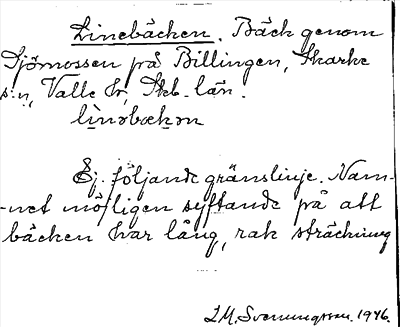 Linebäcken. Bäck genom
Sjömossen på Billingen, Skarke
s:n, Valle hd, Skb. län.
li̱nəbœkən
Ej följande gränslinje. Nam-
-net möjligen syftande på att
bäcken har lång, rak sträckning
I.M. Svenningsson. 1946.